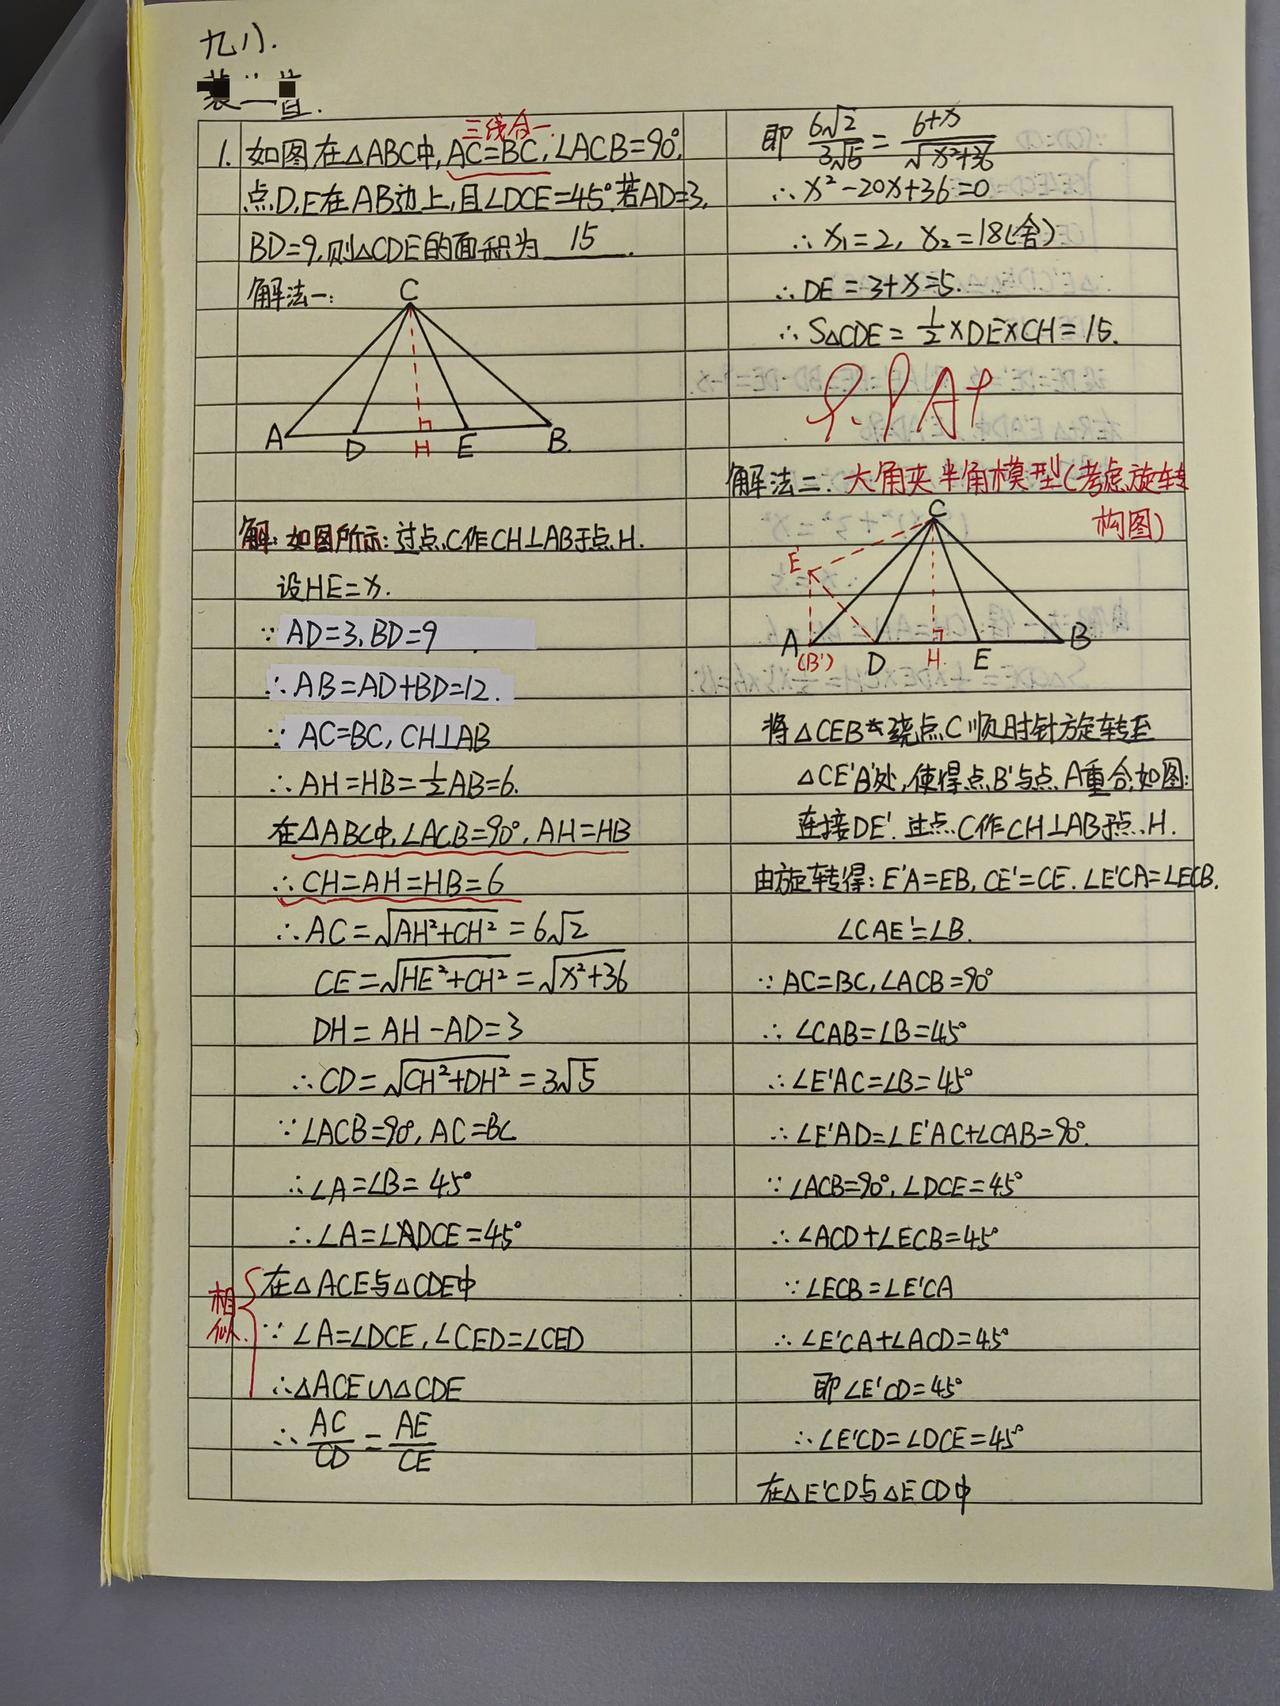 九八.
三线合一
1. 如图在△ABC中,AC=BC,∠ACB=90°,
点D,E在AB边上,且∠DCE=45°.若AD=3,
BD=9,则△CDE的面积为 15 .
解法一:
C
A D H E B
解: 如图所示:过点C作CH⊥AB于点H.
设HE=x.
∵ AD=3,BD=9
∴ AB=AD+BD=12.
∵ AC=BC, CH⊥AB
∴ AH=HB=½AB=6.
在△ABC中,∠ACB=90°, AH=HB
∴ CH=AH=HB=6
∴ AC=√(AH²+CH²)=6√2
CE=√(HE²+CH²)=√(x²+36)
DH=AH-AD=3
∴ CD=√(CH²+DH²)=3√5
∵ ∠ACB=90°, AC=BC
∴ ∠A=∠B=45°
∴ ∠A=∠DCE=45°
相似.
在△ACE与△CDE中
∵ ∠A=∠DCE,∠CED=∠CED
∴ △ACE∽△CDE
∴ AC/CD = AE/CE
即 6√2/3√5 = (6+x)/√(x²+36)
∴ x²-20x+36=0
∴ x₁=2, x₂=18(舍)
∴ DE=3+x=5.
∴ S△CDE=½×DE×CH=15.
A+
解法二: 大角夹半角模型(考虑旋转
构图)
C
E'
A D H E B
(B')
将△CEB绕点C顺时针旋转至
△CE'A'处,使得点B'与点A重合,如图:
连接DE'.过点C作CH⊥AB于点H.
由旋转得: E'A=EB, CE'=CE. ∠E'CA=∠ECB.
∠CAE'=∠B.
∵ AC=BC,∠ACB=90°
∴ ∠CAB=∠B=45°
∴ ∠E'AC=∠B=45°
∴ ∠E'AD=∠E'AC+∠CAB=90°.
∵ ∠ACB=90°,∠DCE=45°
∴ ∠ACD+∠ECB=45°
∵ ∠ECB=∠E'CA
∴ ∠E'CA+∠ACD=45°
即∠E'CD=45°
∴ ∠E'CD=∠DCE=45°
在△E'CD与△ECD中